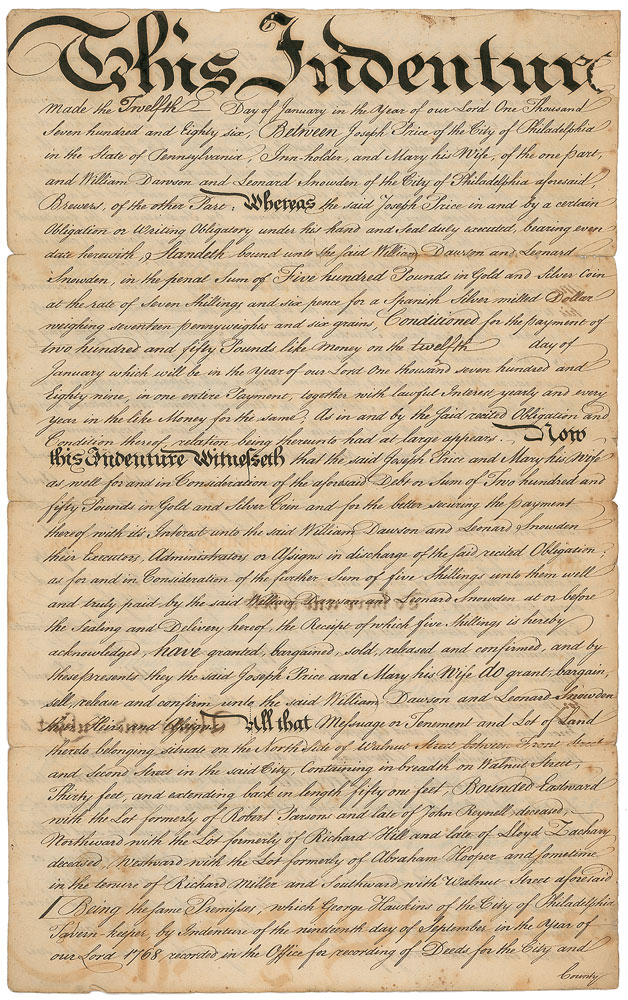 This Indenture
made the Twelfth Day of January in the Year of our Lord One Thousand
Seven hundred and Eighty six, Between Joseph Price of the City of Philadelphia
in the State of Pennsylvania, Inn-holder, and Mary his Wife, of the one part,
and William Dawson and Leonard Snowden of the City of Philadelphia aforesaid,
Brewers, of the other Part. Whereas the said Joseph Price in and by a certain
Obligation or Writing Obligatory under his hand and Seal duly executed, bearing even
date herewith, Standeth bound unto the said William Dawson and Leonard
Snowden, in the penal Sum of Five hundred Pounds in Gold and Silver Coin
at the rate of Seven Shillings and six pence for a Spanish Silver milled Dollar
weighing seventeen pennyweights and six grains, Conditioned for the payment of
two hundred and fifty Pounds like Money on the twelfth day of
January which will be in the Year of our Lord One thousand seven hundred and
Eighty nine, in one entire Payment, together with lawful Interest yearly and every
year in the like Money for the same. As in and by the said recited Obligation and
Condition thereof, relation being thereunto had at large appears. Now
this Indenture Witnesseth that the said Joseph Price and Mary his Wife
as well for and in Consideration of the aforesaid Debt or Sum of Two hundred and
fifty Pounds in Gold and Silver Coin and for the better securing the payment
thereof with its Interest unto the said William Dawson and Leonard Snowden
their Executors, Administrators or Assigns in discharge of the said recited Obligation;
as for and in Consideration of the further Sum of five Shillings unto them well
and truly paid by the said William Dawson and Leonard Snowden at or before
the Sealing and Delivery hereof, the Receipt of which five Shillings is hereby
acknowledged, have granted, bargained, sold, released and confirmed, and by
these presents they the said Joseph Price and Mary his Wife do grant, bargain,
sell, release and confirm unto the said William Dawson and Leonard Snowden
their Heirs and Assigns All that Messuage or Tenement and Lot of Land
thereto belonging situate on the North side of Walnut Street between Front street
and Second Street in the said City, Containing in breadth on Walnut Street,
Thirty feet, and extending back in length fifty one feet, Bounded Eastward
with the Lot formerly of Robert Parsons and late of John Reynell, deceased,
Northward with the Lot formerly of Richard Hill and late of Lloyd Zachary
deceased, Westward with the Lot formerly of Abraham Hooper and sometime
in the tenure of Richard Miller and Southward with Walnut Street aforesaid.
Being the same Premisses, which George Hawkins of the City of Philadelphia
Tavern-keeper, by Indenture of the nineteenth day of September in the Year of
our Lord 1768 recorded in the Office for recording of Deeds for the City and
County